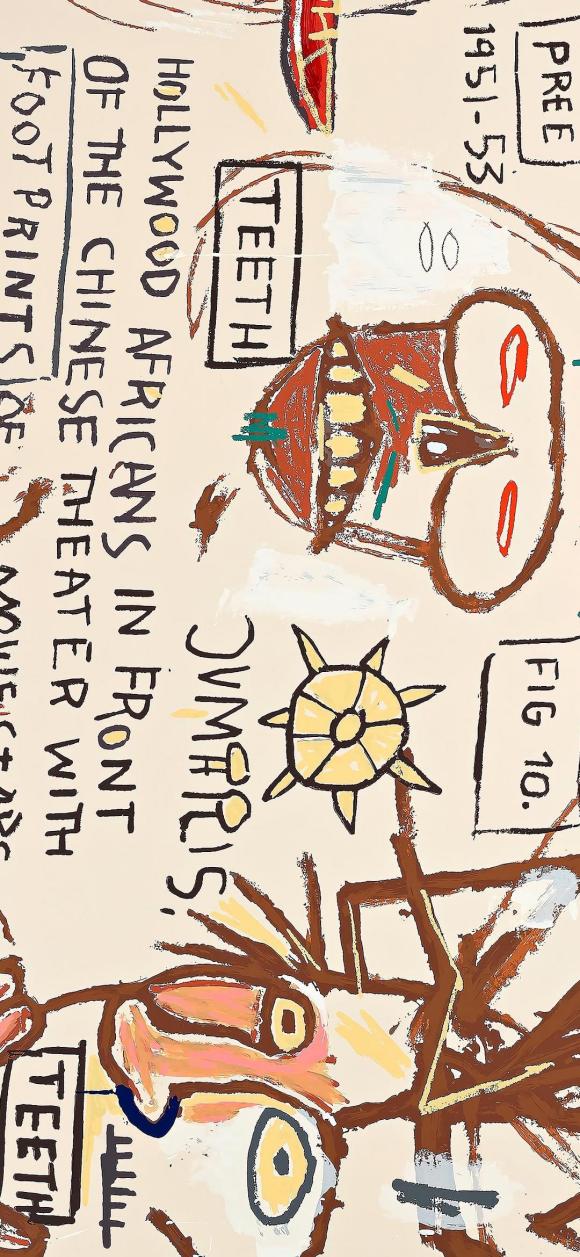 PREE
1951-53
FIG 10.
TEETH
JUMARIS.
HOLLYWOOD AFRICANS IN FRONT
OF THE CHINESE THEATER WITH
FOOTPRINTS OF
TEETH